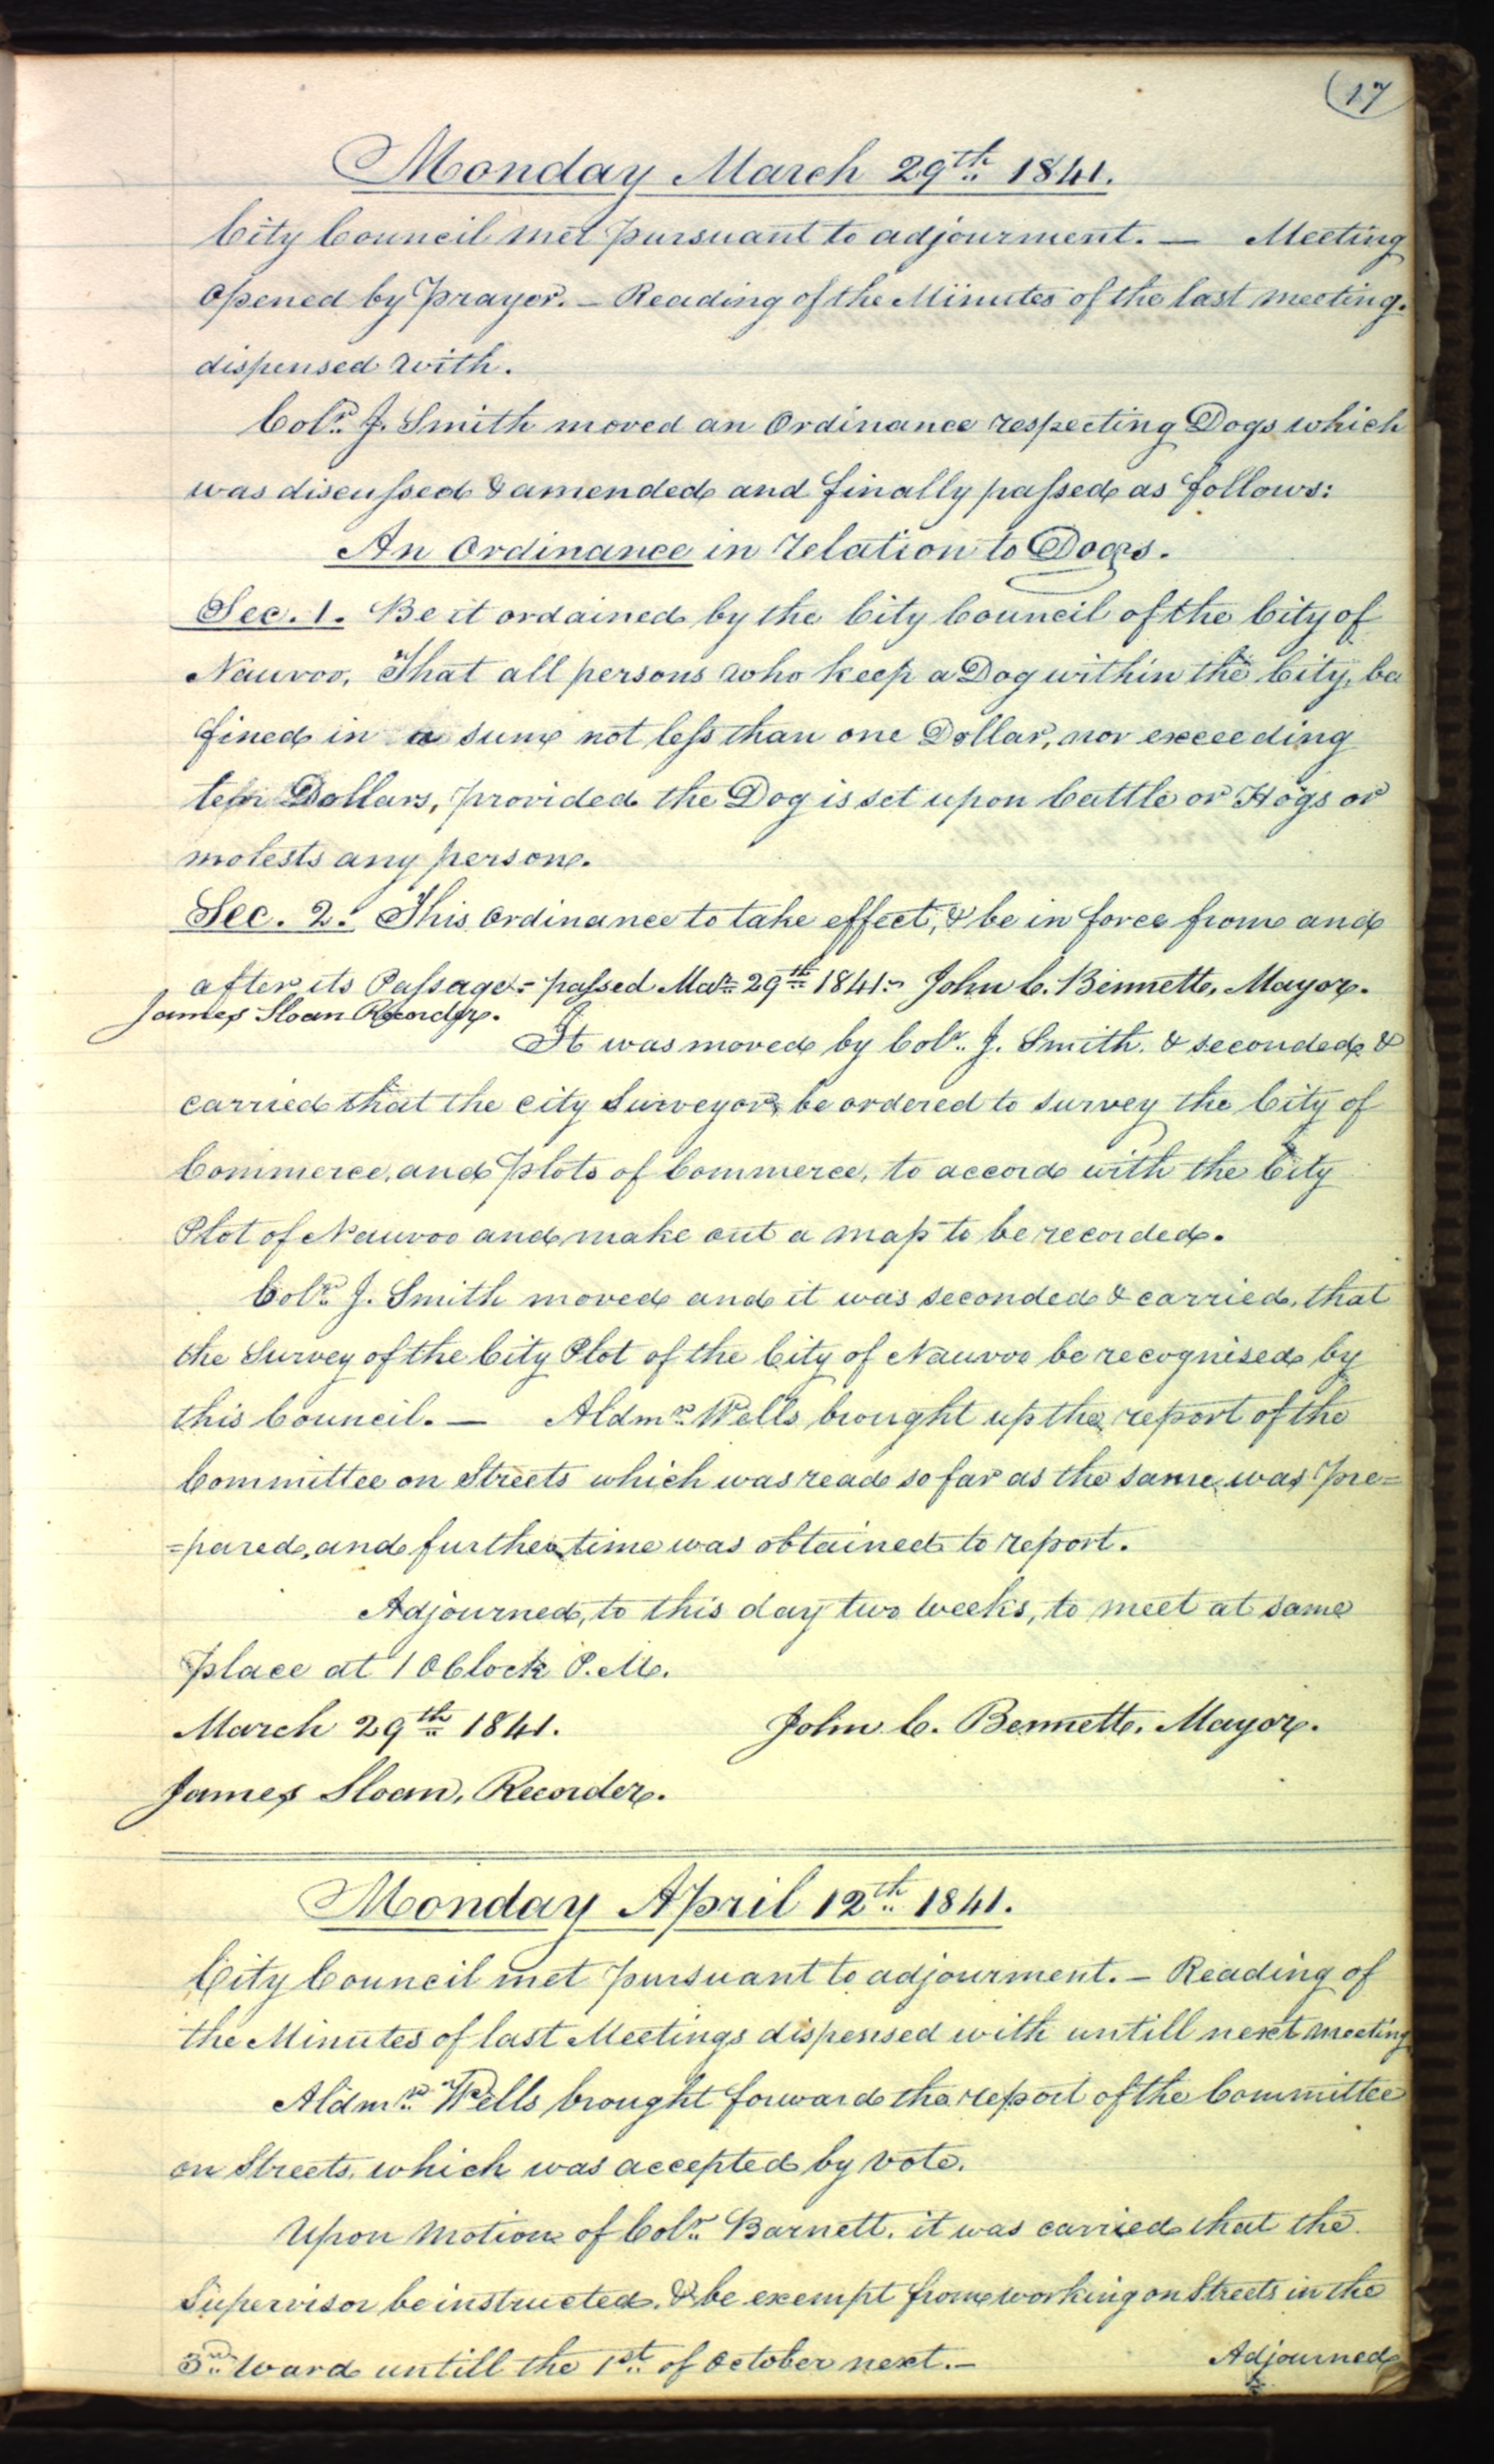 (17
Monday March 29th 1841.
City Council met pursuant to adjourment. — Meeting
Opened by Prayer. – Reading of the Minutes of the last meeting.
dispensed with.
Colr. J. Smith moved an Ordinance respecting Dogs which
was discussed & amended and finally passed as follows:
An Ordinance in relation to Dogs.
Sec. 1. Be it ordained by the City Council of the City of
Nauvoo, That all persons who keep a Dog within the City, be
fined in a sum not less than one Dollar, nor exceeding
ten Dollars, provided the Dog is set upon Cattle or Hogs or
molests any person.
Sec. 2. This Ordinance to take effect, & be in force from and
after its Passage.= passed Mar. 29th 1841.= John C. Bennett, Mayor.
James Sloan Recorder.
It was moved by Colr. J. Smith. & seconded &
carried that the City Surveyor, be ordered to survey the City of
Commerce, and Plots of Commerce, to accord with the City
Plot of Nauvoo and make out a map to be recorded.
Colr. J. Smith moved and it was seconded & carried, that
the Survey of the City Plot of the City of Nauvoo be recognised by
this Council. — Aldmr. Wells brought up the report of the
Committee on Streets which was read so far as the same was pre=
=pared, and further time was obtained to report.
Adjourned, to this day two weeks, to meet at same
place at 1 OClock P.M.
March 29th 1841. John C. Bennett. Mayor.
James Sloan, Recorder.
Monday April 12th 1841.
City Council met pursuant to adjourment. – Reading of
the Minutes of last Meetings dispensed with untill next meeting
Aldmr. Wells brought forward the report of the Committee
on Streets, which was accepted by vote.
Upon Motion of Colr. Barnett, it was carried that the
Supervisor be instructed, & be exempt from working on Streets in the
3rd Ward untill the 1st of October next.– Adjourned